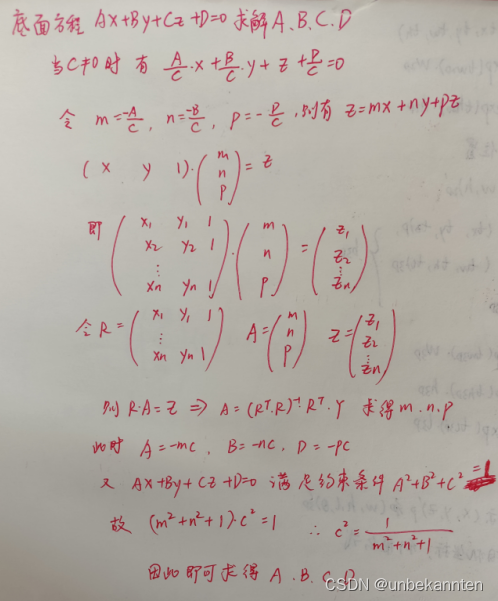 底面方程 Ax+By+Cz+D=0 求解A.B.C.D
当C≠0时 有 A/C·x+B/C·y+z+D/C=0
令 m=-A/C, n=-B/C, p=-D/C, 则有 z=mx+ny+pz
(x y 1)·(m n p)=z
即 (x1 y1 1 x2 y2 1 ⋮ xn yn 1)·(m n p)=(z1 z2 ⋮ zn)
令R=(x1 y1 1 ⋮ xn yn 1) A=(m n p) Z=(z1 z2 ⋮ zn)
则 R·A=Z ⇒ A=(R^T·R)^-1·R^T·Y 求得m.n.p
此时 A=-mc, B=-nc, D=-pc
又 Ax+By+Cz+D=0 满足约束条件 A²+B²+C²=1
故 (m²+n²+1)·c²=1 ∴ c²=1/(m²+n²+1)
因此即可求得 A.B.C.D
CSDN @unbekannten